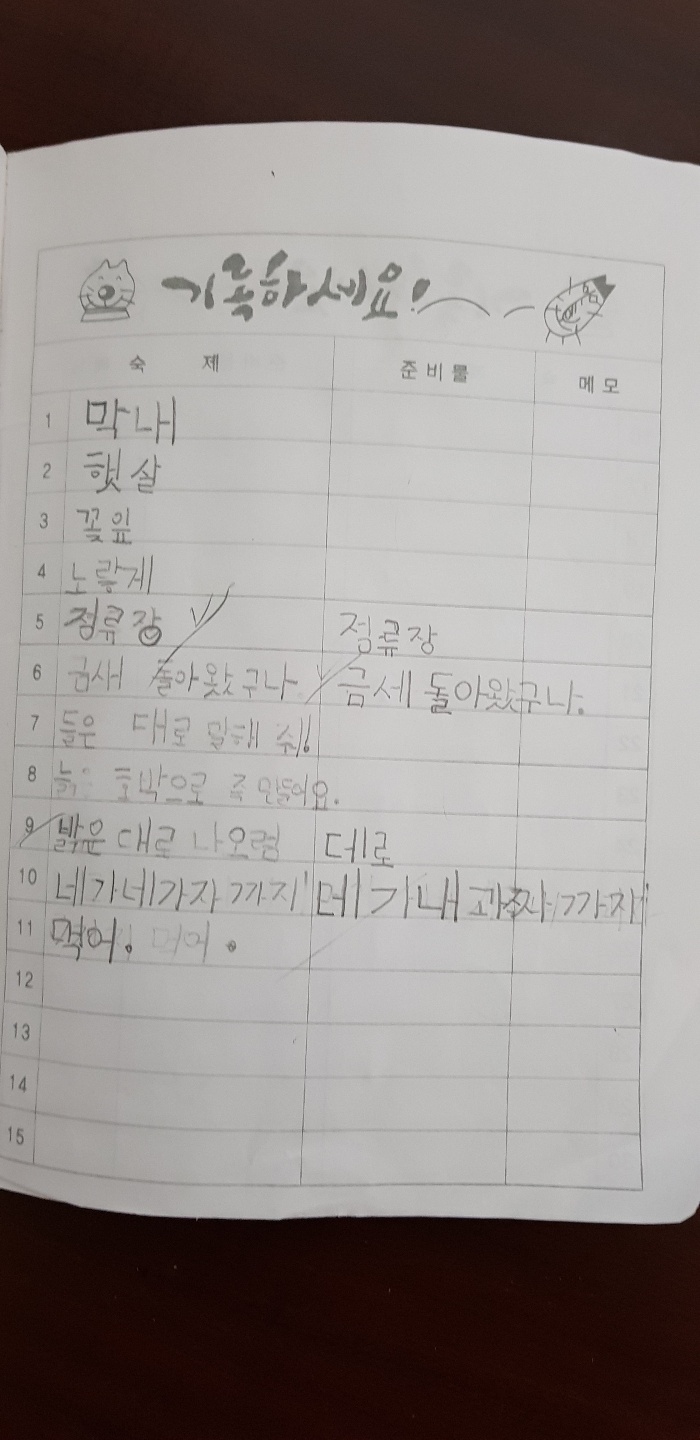 기록하세요!
숙 제 준비물 메모
1 막내
2 햇살
3 꽃잎
4 노랗게
5 정류장 정류장
6 금새 돌아왔구나 금세 돌아왔구나.
7 들은 대로 말해 줘!
8 늙은 호박으로 죽 만들어요.
9 밝은 대로 나오렴 데로
10 네가네가자까지 네가내과자까지
11 먹어. 먹어.
12
13
14
15